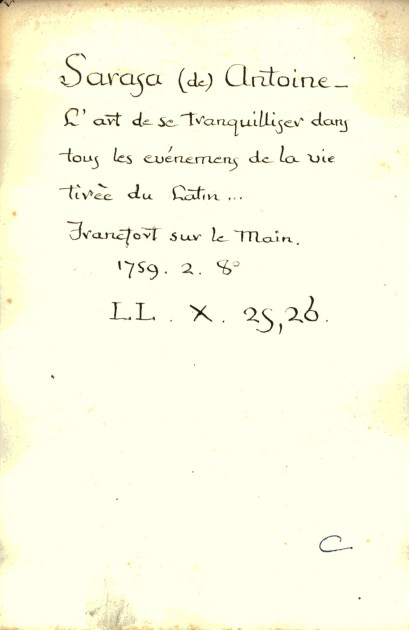 Sarasa (de) Antoine –
L' art de se tranquilliser dans
tous les evénemens de la vie
tirée du Latin ...
Francfort sur le Main.
1759. 2. 8°
LL. X. 25, 26.
C